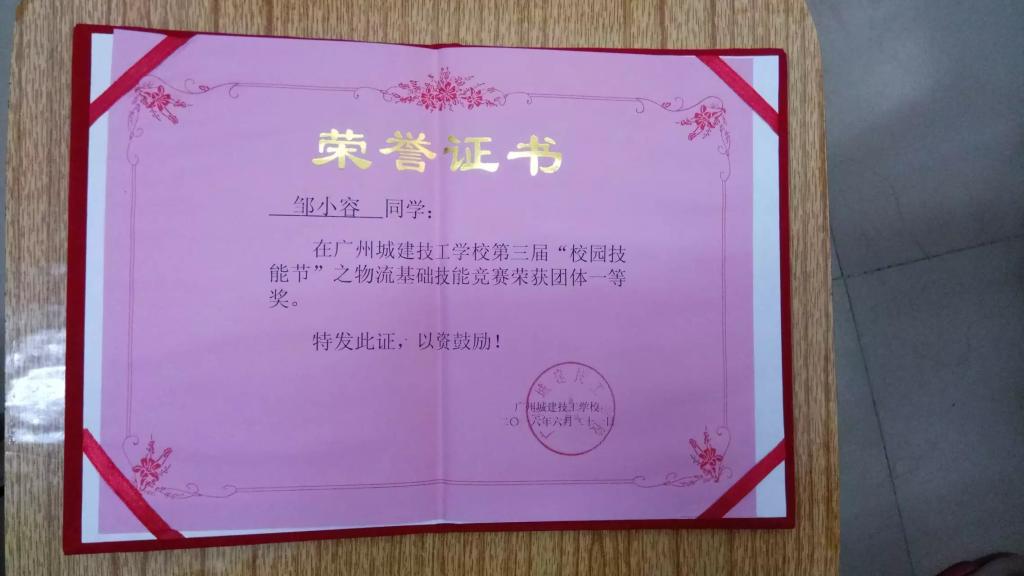 荣誉证书
邹小容 同学:
在广州城建技工学校第三届“校园技
能节”之物流基础技能竞赛荣获团体一等
奖。
特发此证,以资鼓励!
城建技工
广州城建技工学校
二〇一六年六月二十 日